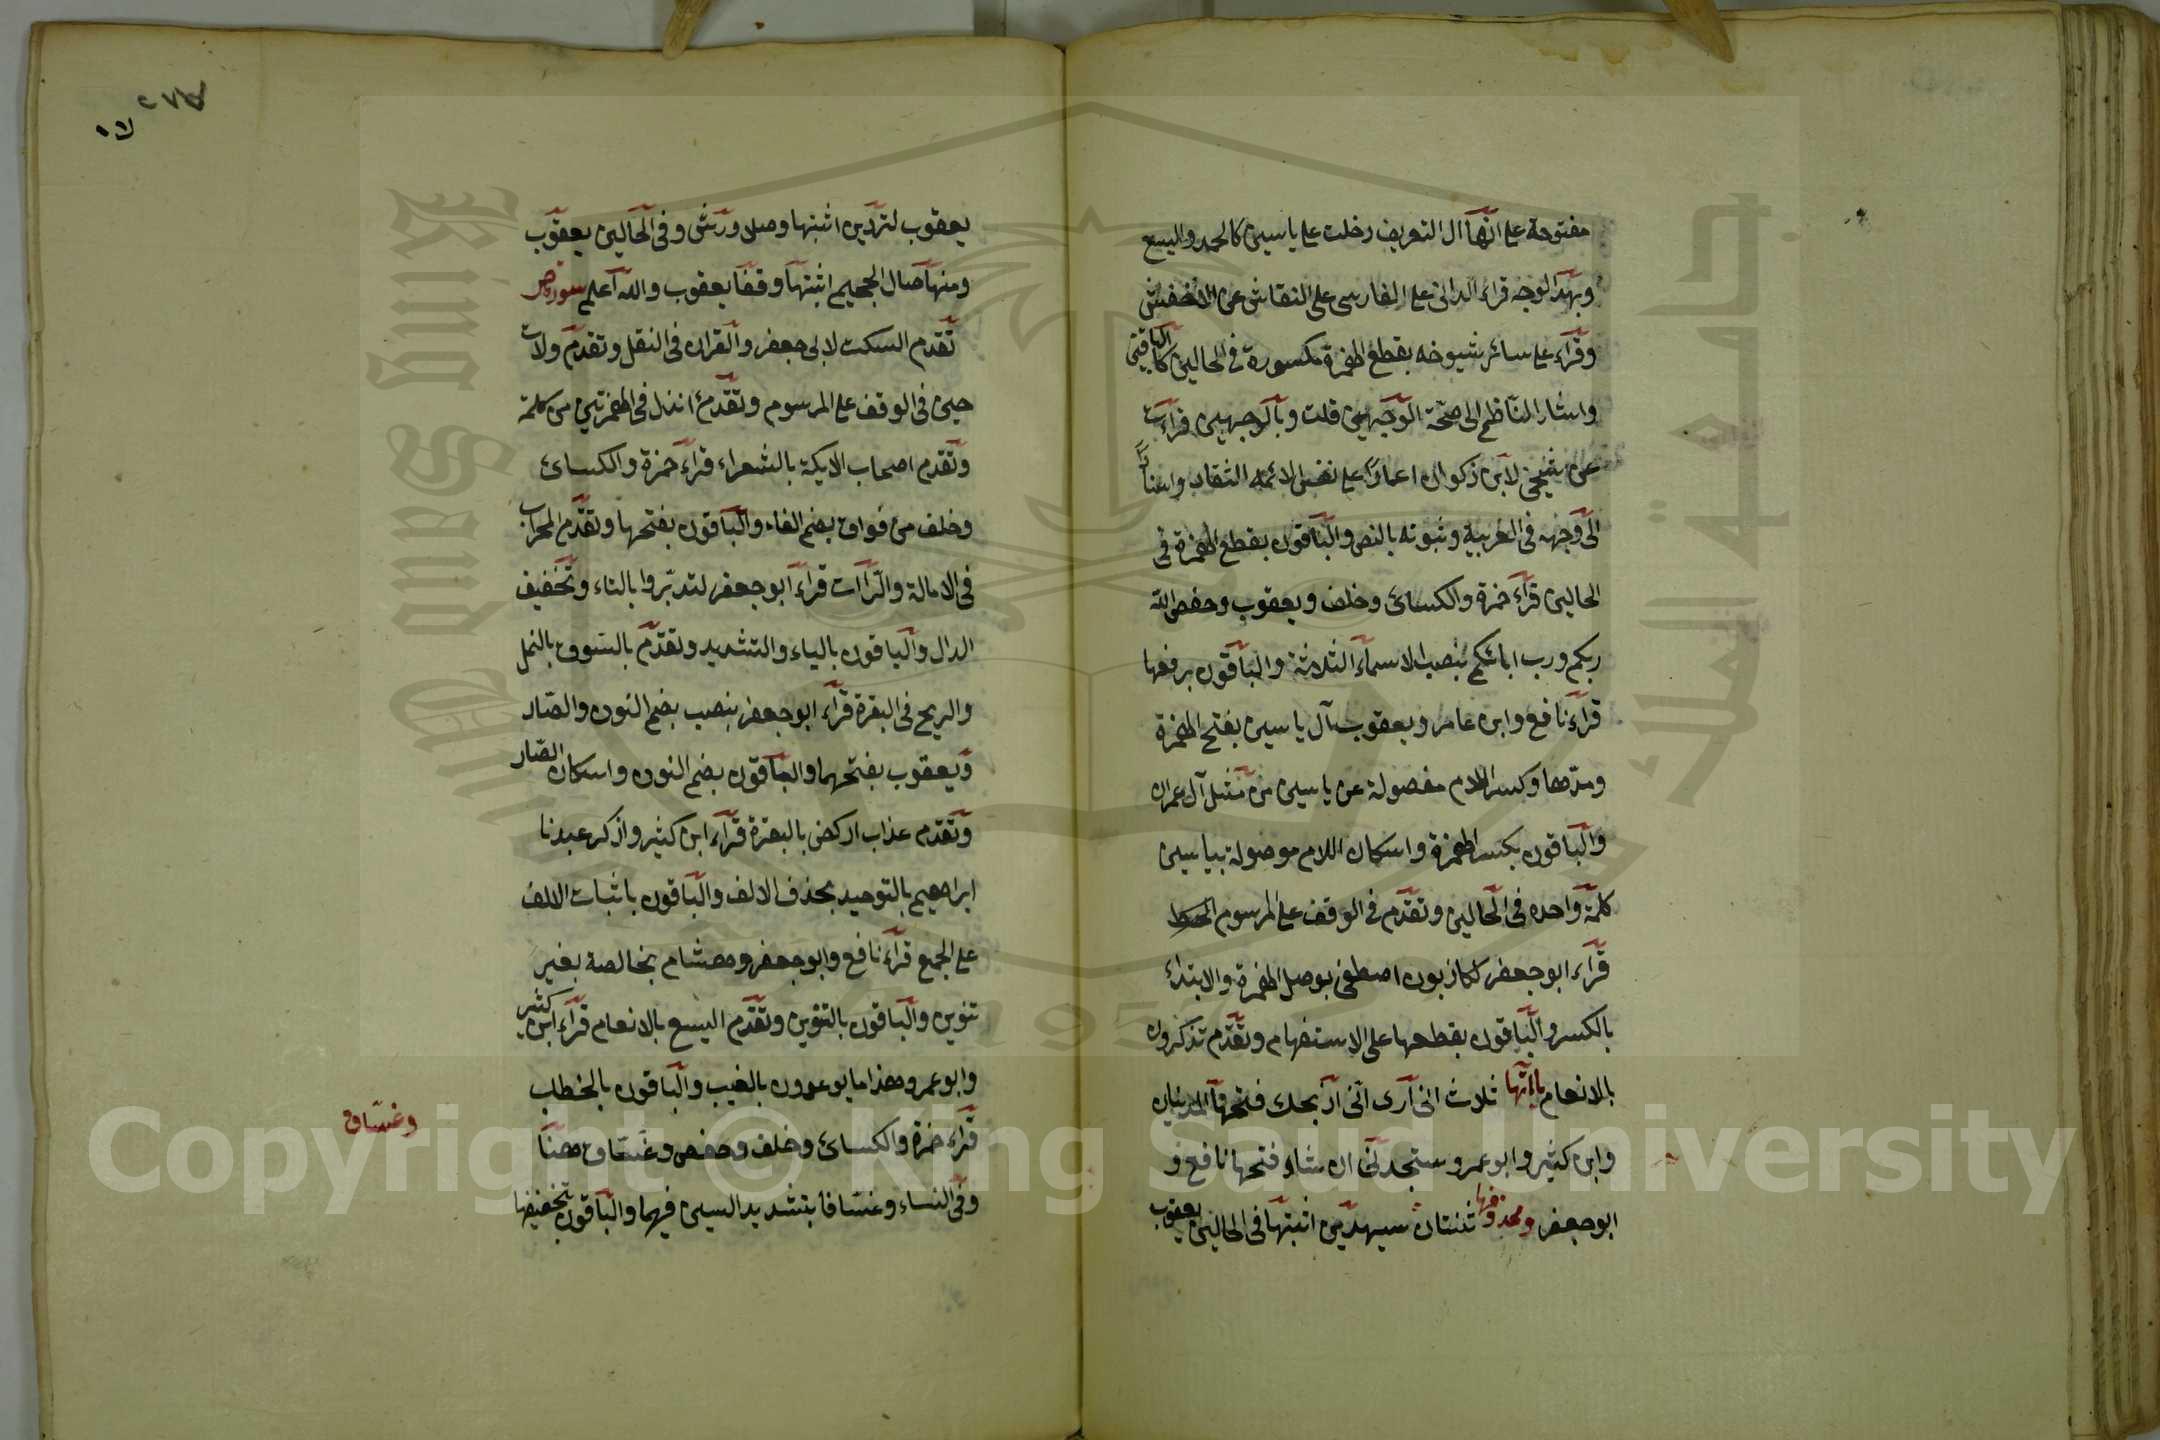 مفتوحة على انها ال التعريف دخلت على ياسين كالحمد واليسع
وبهذا الوجه قراء الدانى على الفارسى على النقاش عن الاخفش
وقراء على سائر شيوخه بقطع الهمزة مكسورة فى الحالين كالباقين
واشار الناظم الى صحة الوجهين قلت وبالوجهين قراءت
عن شيخى لابن ذكوان اعمادا على نقض الائمه الثقاب واسنادا
الى وجهه فى العربية وثبوته بالنص والباقون بقطع الهمزة فى
الحالين قراء حمزة والكسائ وخلف ويعقوب وحفص الله
ربكم ورب ابائكم بنصب الاسماء الثلاثة والباقون برفعها
قراء نافع وابن عامر ويعقوب آل ياسين بفتح الهمزة
ومدها وكسر اللام مفصولة عن ياسين من مثل آل عمران
والباقون بكسر الهمزة واسكان اللام موصولة بياسين
كلمة واحده فى الحالين وتقدم فى الوقف على المرسوم الخط
قراء ابو جعفر لكاذبون اصطفى بوصل الهمزة والابتداء
بالكسر والباقون بقطعها على الاستفهام وتقدم تذكرون
بالانعام ياآتها ثلاث انى ارى انى اذبحك فتحها المدنيان
وابن كثير وابو عمرو ستجدنى ان شاء فتحها نافع و
ابو جعفر ومحذوفها ثنتان سيهدين اثبتها فى الحالين يعقوب
٢٧٥
١٥
يعقوب لتردين اثبتها وصلا ورش وفى الحالين يعقوب
ومنها صال الجحيم اثبتها وقفا يعقوب والله اعلم سورة ص
تقدم السكت لابى جعفر والقران فى النقل وتقدم ولات
حين فى الوقف على المرسوم وتقدم اانزل فى الهمزتين من كلمة
وتقدم اصحاب الايكة بالشعراء قراء حمزة والكسائ
وخلف من فواق بضم الفاء والباقون بفتحها وتقدم المحراب
فى الامالة والراات قراء ابو جعفر لتدبروا بالتاء وتخفيف
الدال والباقون بالياء والتشديد وتقدم بالسوق بالنمل
والريح فى البقرة قراء ابو جعفر بنصب بضم النون والصاد
ويعقوب بفتحهما والباقون بضم النون واسكان الصاد
وتقدم عذاب اركض بالبقرة قراء ابن كثير واذكر عبدنا
ابراهيم بالتوحيد بحذف الالف والباقون باثبات الالف
على الجمع قراء نافع وابو جعفر وهشام بخالصة بغير
تنوين والباقون بالتنوين وتقدم اليسع بالانعام قراء ابن كثير
وابو عمرو هذا ما يوعدون بالغيب والباقون بالخطاب
قراء حمزة والكسائ وخلف وحفص وغساق هنا
وفى النساء وغساقا بتشديد السين فيهما والباقون بتخفيفها
وغساق
King Saud University
جامعة الملك سعود
1957
Copyright © King Saud University